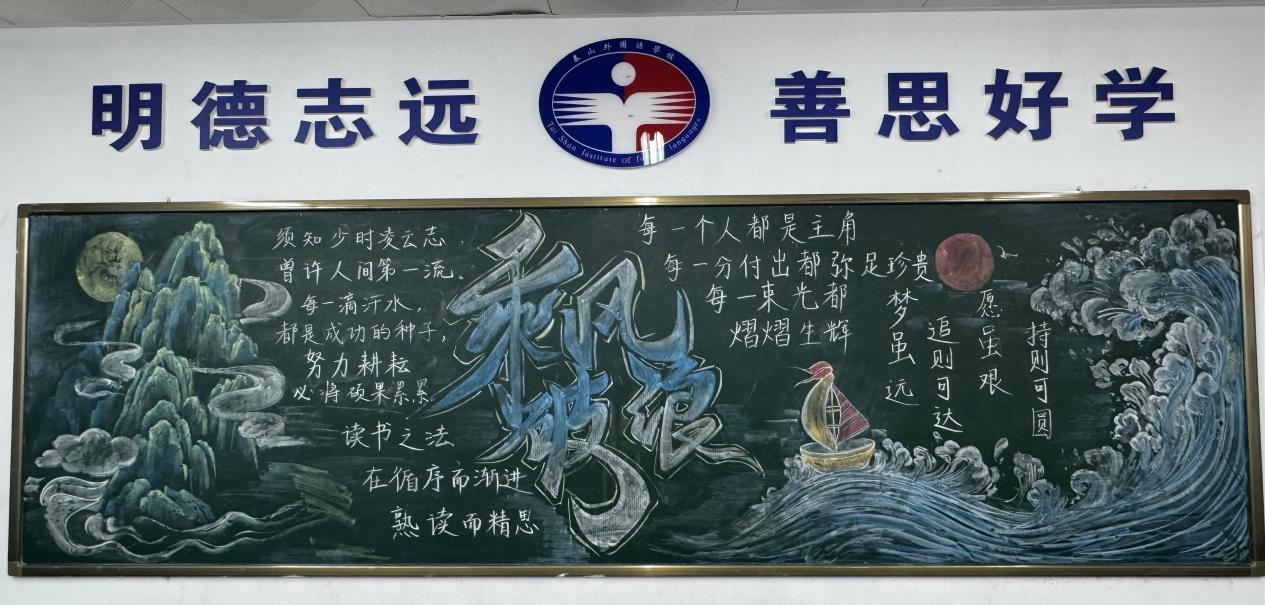 明德志远
泰山外国语学校
Tai Shan Institute of foreign languages
善思好学
须知少时凌云志，
曾许人间第一流。
每一滴汗水，
都是成功的种子，
努力耕耘
必将硕果累累。
读书之法
在循序而渐进
熟读而精思
乘风
破浪
每一个人都是主角
每一分付出都弥足珍贵
每一束光都
熠熠生辉
梦虽远
追则可达
愿虽艰
持则可圆